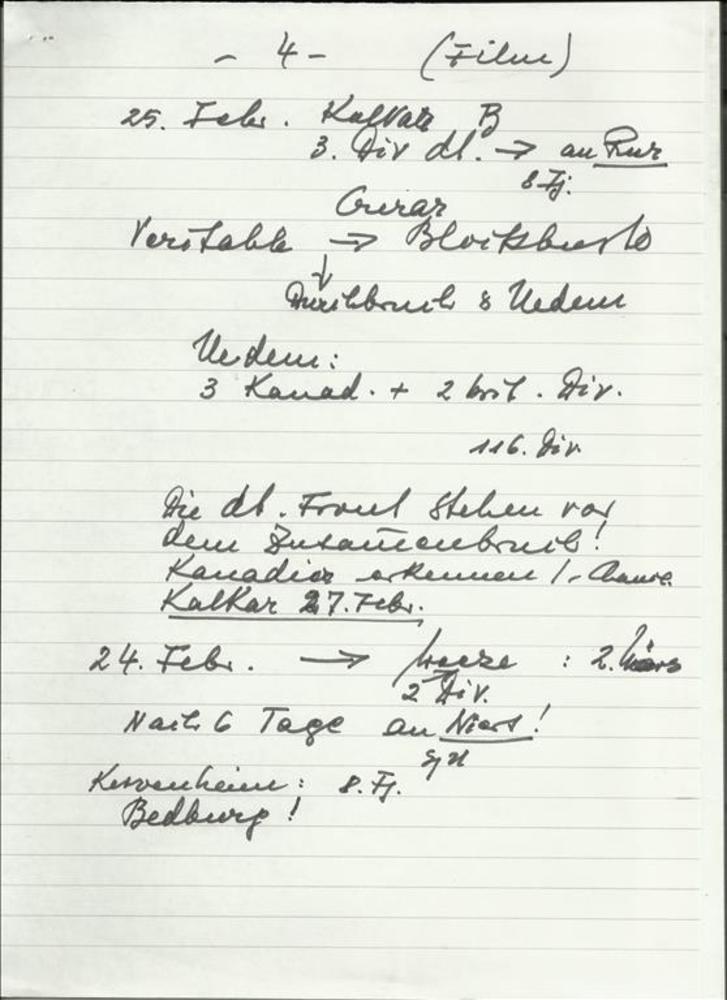 - 4 - (Film)
25. Febr. B
3. Div dt. → an Rur
8 Fj.
Crerar
Veritable → Blockbusto
↓
Durchbruch 8 Uedem
Uedem:
3 Kanad. + 2 brit. Div.
116. Div.
Die dt. Front stehen vor
dem Zusam̅enbruch!
Kanadier erkennen
Kalkar 27. Febr.
24. Febr. → Weeze : 2. März
2 Div.
Nach 6 Tage an Niers!
Kervenheim: 8. Fj.
Bedburg!